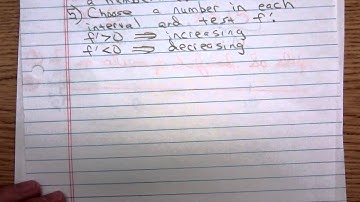 a number
5) Choose a number in each
interval and test f'.
f'>0 ⇒ increasing
f'<0 ⇒ decreasing